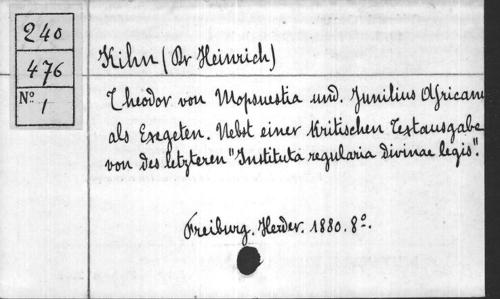 240
476
№ 1
Kihn (Dr Heinrich)
Theodor von Mopsuestia und. Junilius Africanu
als Exegeten. Nebst einer kritischen Textausgabe
von des letzteren "Instituta regularia divinae legis".
Freiburg. Herder. 1880. 8º.